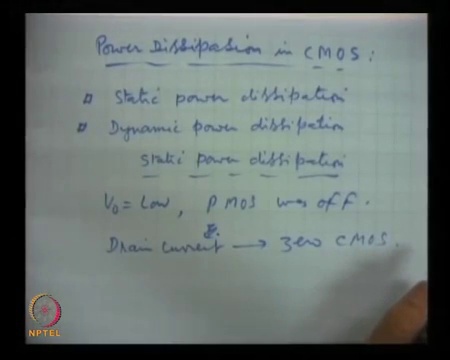 Power Dissipation in CMOS:
□ Static power dissipation
□ Dynamic power dissipation
static power dissipation
V₀ = Low, PMOS was off.
Drain current → zero CMOS.
NPTEL